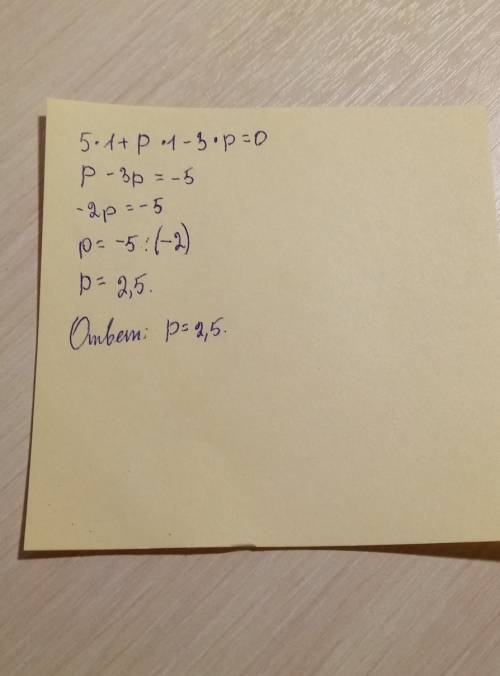 5·1+p·1-3·p=0
p-3p=-5
-2p=-5
p=-5:(-2)
p=2,5.
Ответ: p=2,5.